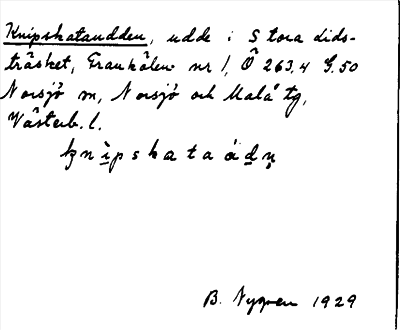 Knipskataudden, udde i Stora Lids-
träsket, Granhölen nr 1, Ö 263.4 G.50
Norsjö sn, Norsjö och Malå tg,
Västerb. l.
knipskataådn
B. Nygren 1929